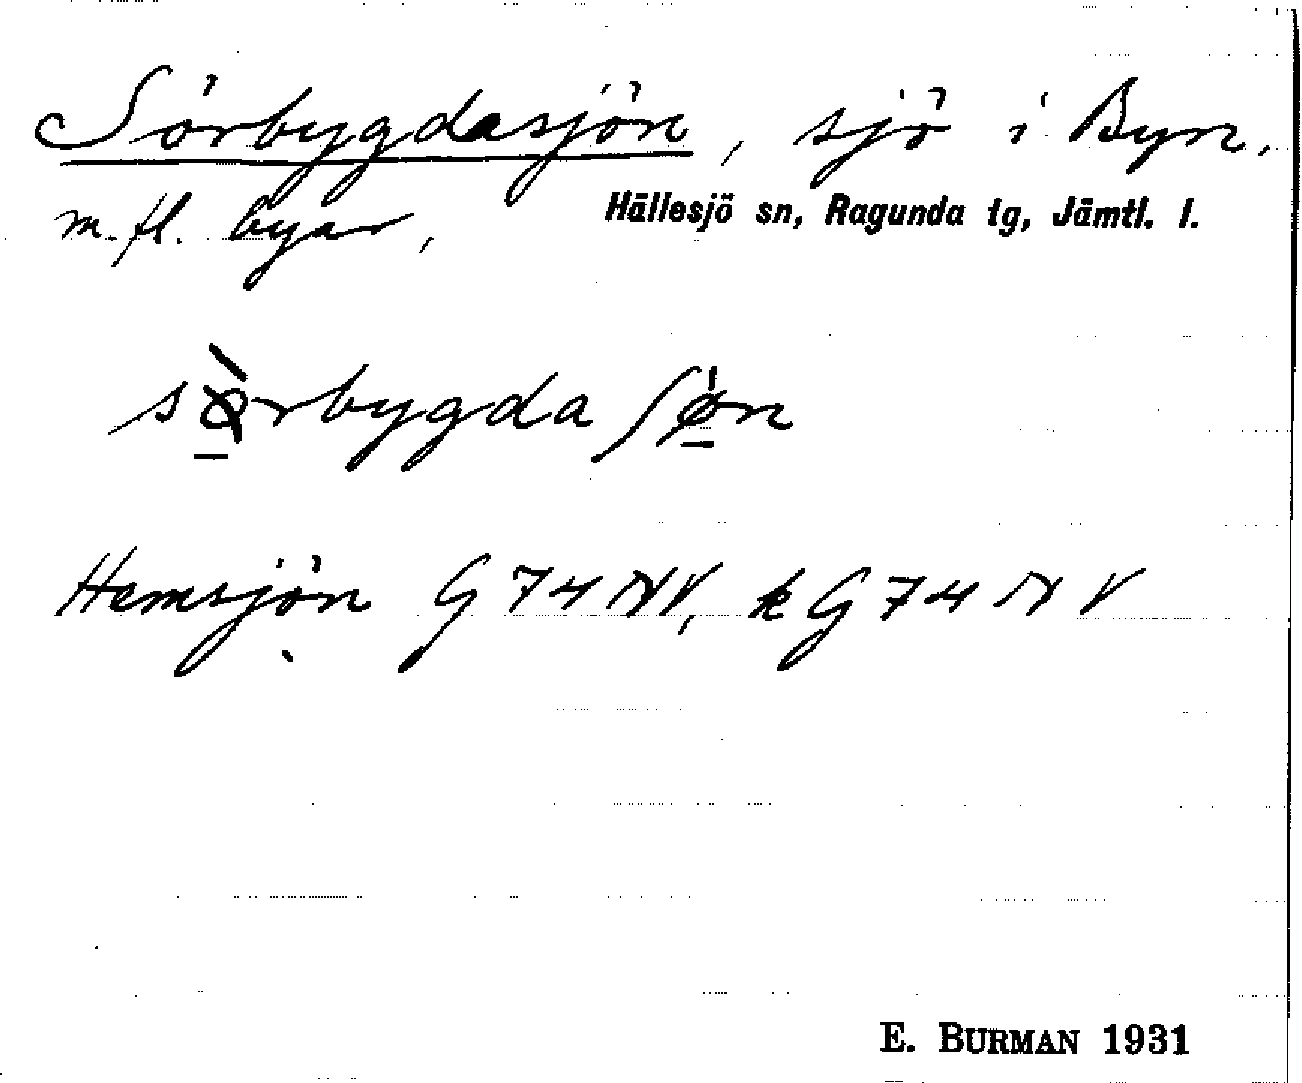 Sörbygdasjön, sjö i Byn,
m. fl. byar, Hällesjö sn, Ragunda tg, Jämtl. l.
sø̠̀rbygdaʃø̠̍n
Hemsjön G 74 NV, k G 74 N V
E. BURMAN 1931